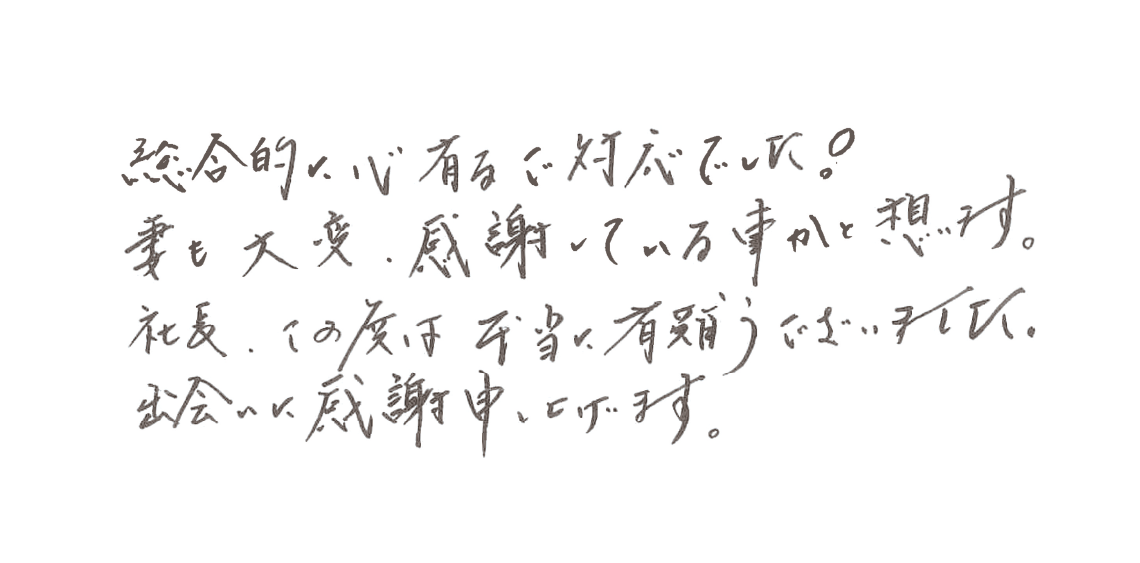 総合的に心有るご対応でした!
妻も大変、感謝している事かと想います。
社長、この度は本当に有難うございました。
出会いに感謝申し上げます。